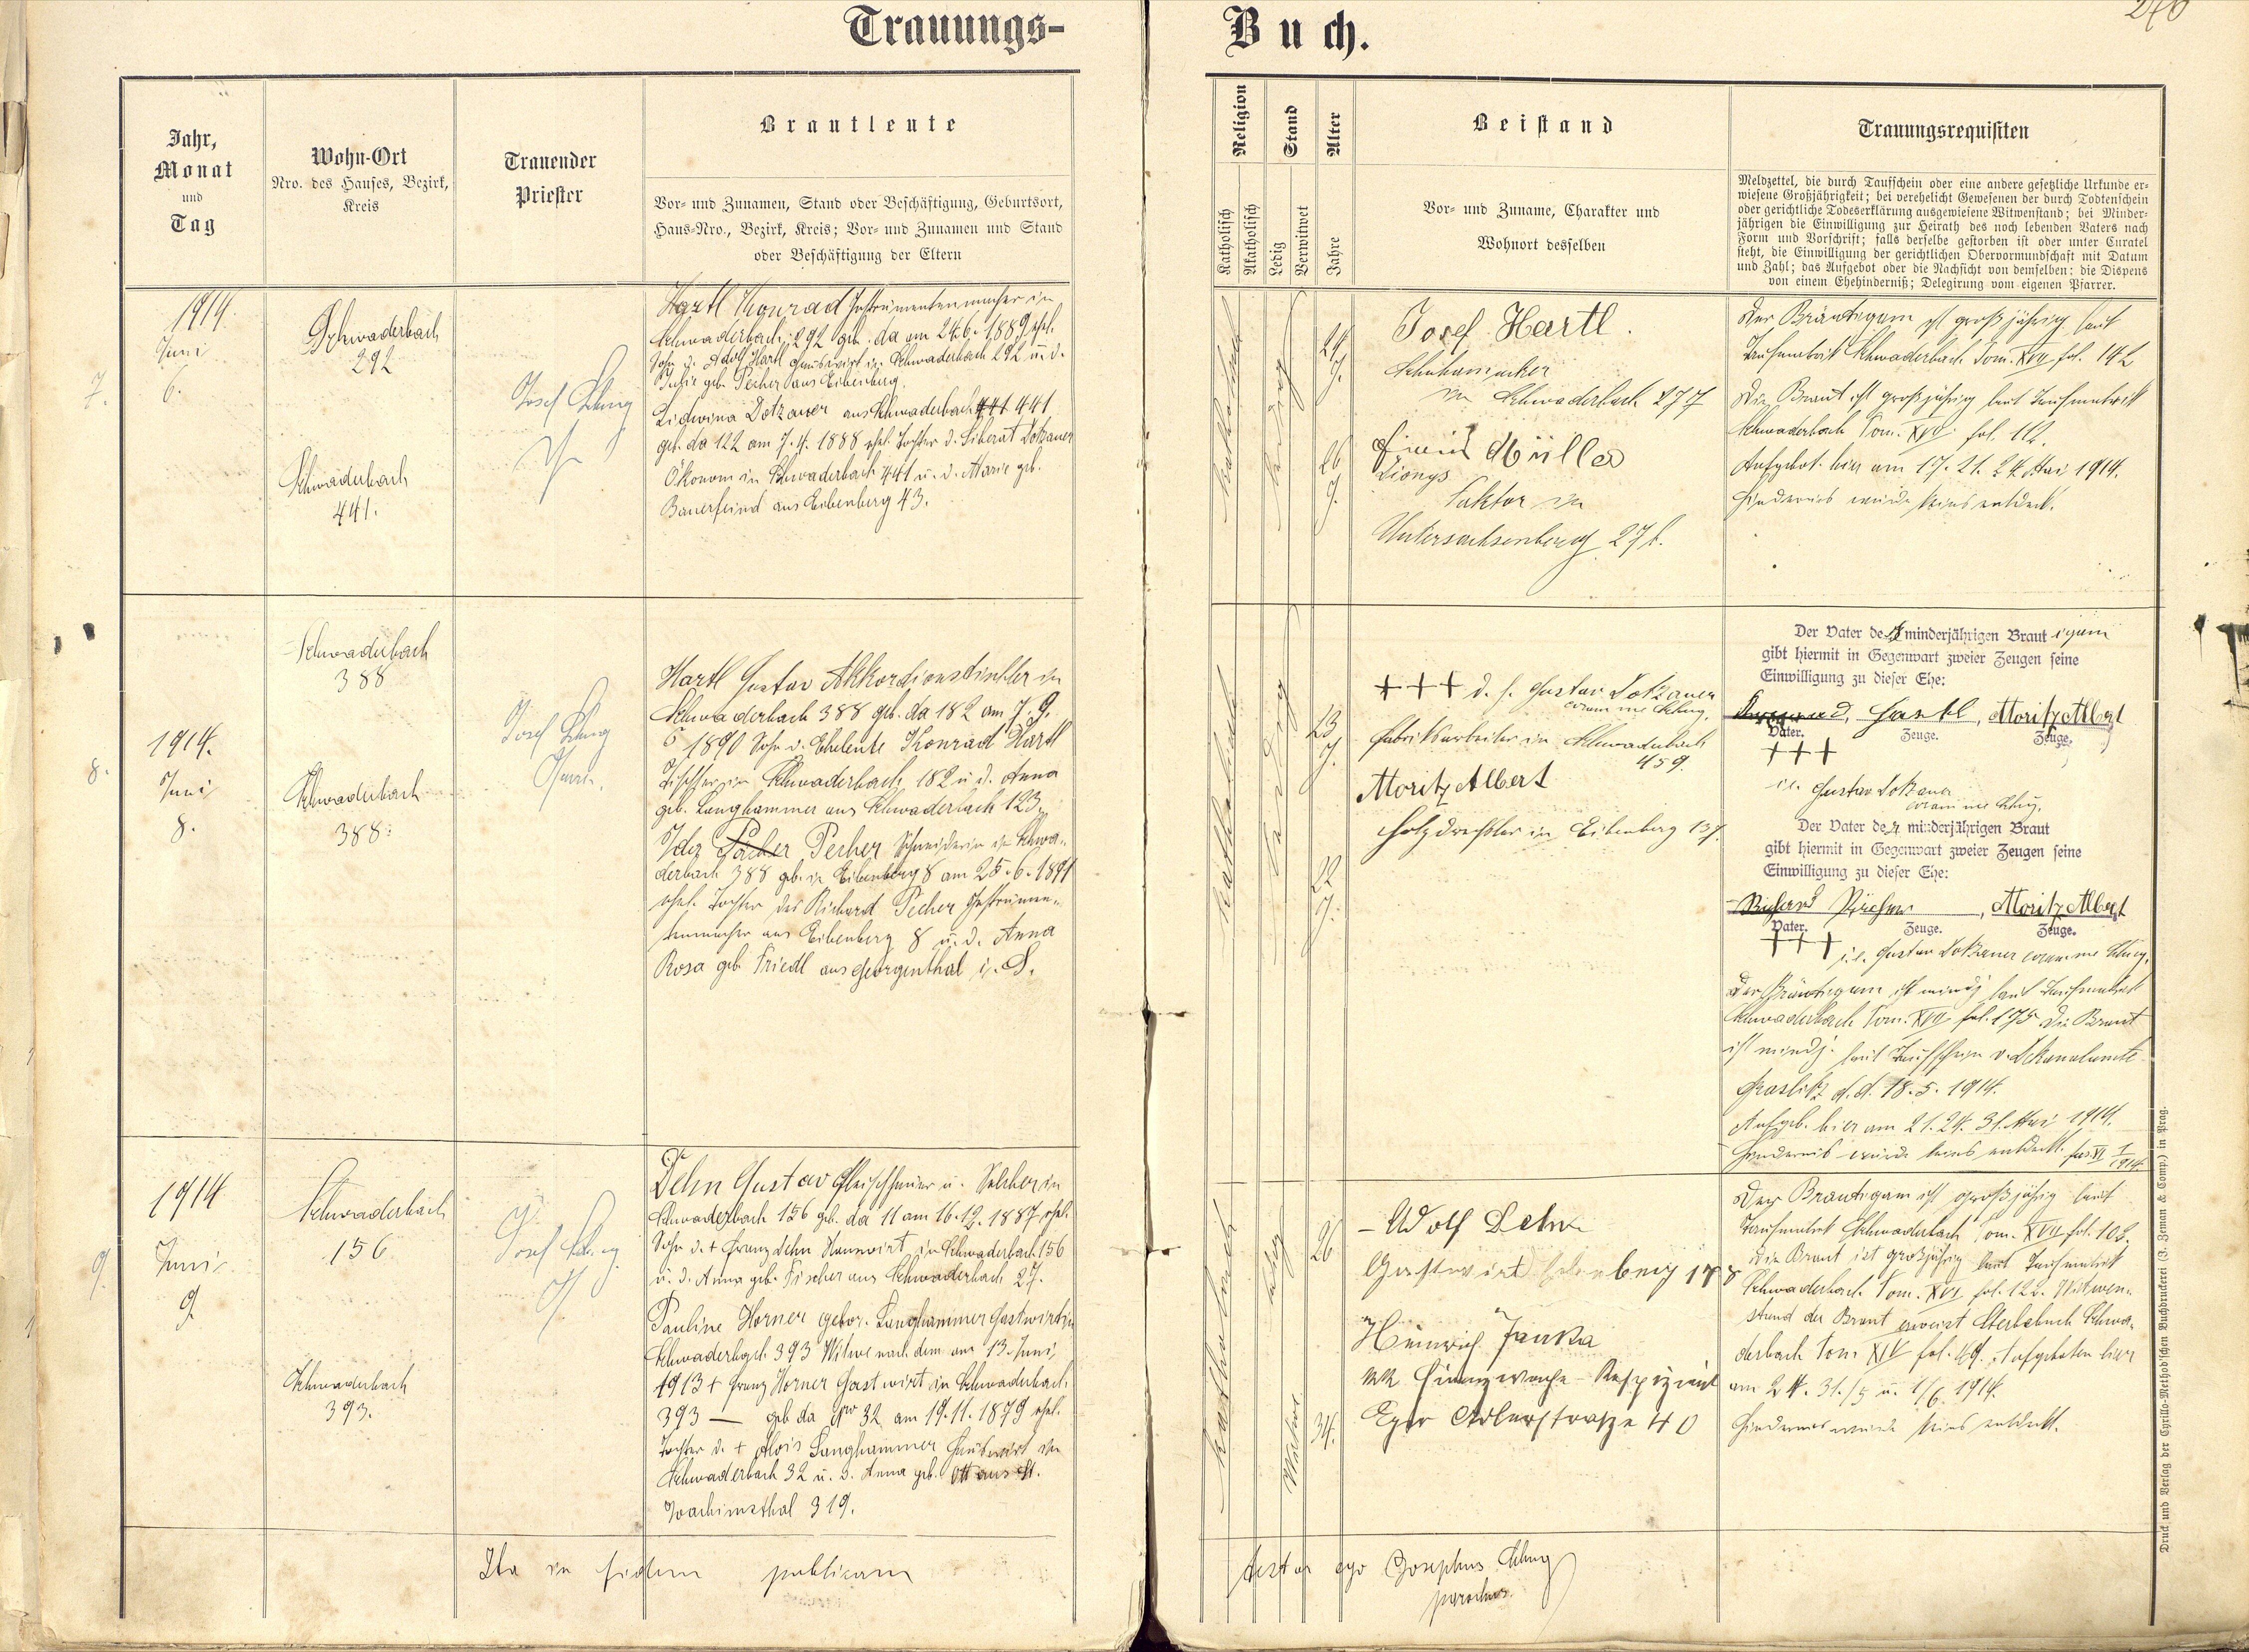 Trauungs-
Jahr,
Monat
und
Tag
Wohn-Ort
Nro. des Hauses, Bezirk,
Kreis
Trauender
Priester
Brautleute
Vor- und Zunamen, Stand oder Beschäftigung, Geburtsort,
Haus-Nro., Bezirk, Kreis; Vor- und Zunamen und Stand
oder Beschäftigung der Eltern
7.
1914.
Juni
6.
Schwaderbach
292
Schwaderbach
441.
Josef
Hartl Konrad Instrumentenmacher in
Schwaderbach 292 geb. da am 24.6.1889 ehel.
Sohn d. Adolf Hartl Hauswirt in Schwaderbach 292 u. d.
Julie geb. Pecher aus Eibenberg.
Lidwina Dotzauer aus Schwaderbach 441 441
geb. da 122 am 7.4.1888 ehel. Tochter d. Liberat Dotzauer
Ökonom in Schwaderbach 441 u. d. Marie geb.
Bauerfeind aus Eibenberg 43.
8.
1914.
Juni
8.
Schwaderbach
388
Schwaderbach
388.
Josef
Hartl Gustav Akkordionstischler in
Schwaderbach 388 geb. da 182 am 7.9.
1890 Sohn d. Eheleute Konrad Hartl
Tischler in Schwaderbach 182 u. d. Anna
geb. Langhammer aus Schwaderbach 123,
Ida Pecher Schneiderin in Schwa-
derbach 388 geb. in Eibenberg 8 am 25.6.1891
ehel. Tochter des Richard Pecher Instrumen-
tenmacher aus Eibenberg 8 u. d. Anna
Rosa geb. Friedl aus Georgenthal i. S.
9.
1914
Juni
9
Schwaderbach
156
Schwaderbach
393.
Josef
Dehn Gustav Fleischhauer u. Selcher in
Schwaderbach 156 geb. da 11 am 16.12.1887, ehel.
Sohn d. + Franz Dehn Hauswirt in Schwaderbach 156
u. d. Anna geb. Fischer aus Schwaderbach 27.
Pauline Horner gebor. Langhammer Gastwirtin
Schwaderbach 393 Witwe nach dem am 13. Juni
1913 + Franz Horner Gastwirt in Schwaderbach
393 — geb. da Nro 32 am 19.11.1879 ehel.
Tochter d. + Alois Langhammer Hauswirt in
Schwaderbach 32 u. d. Anna geb. Ott aus St.
Joachimsthal 319.
Ita in fidem publicam
Buch.
Religion
Stand
Alter
Katholisch
Akatholisch
Ledig
Verwitwet
Jahre
Beistand
Vor- und Zuname, Charakter und
Wohnort desselben
Trauungsrequisiten
Meldzettel, die durch Taufschein oder eine andere gesetzliche Urkunde er-
wiesene Großjährigkeit; bei verehelicht Gewesenen der durch Todtenschein
oder gerichtliche Todeserklärung ausgewiesene Witwenstand; bei Minder-
jährigen die Einwilligung zur Heirath des noch lebenden Vaters nach
Form und Vorschrift; falls derselbe gestorben ist oder unter Curatel
steht, die Einwilligung der gerichtlichen Obervormundschaft mit Datum
und Zahl; das Aufgebot oder die Nachsicht von demselben; die Dispens
von einem Ehehinderniß; Delegirung vom eigenen Pfarrer.
katholisch
ledig
24
J.
26
J.
Josef Hartl.
Schuhmacher
in Schwaderbach 277
Müller
Dionys
Faktor in
Untersachsenberg 27
Der Bräutigam ist großjährig laut
Taufmatrik Schwaderbach Tom. XVII fol. 142
Die Braut ist großjährig laut Taufmatrik
Schwaderbach Tom. XVII fol. 112.
Aufgebot. hier am 17. 21. 24. Mai 1914.
Hindernis wurde keins entdeckt.
katholisch
ledig
23
J.
22
J.
+++ d. h. Gustav Dotzauer
coram me
Fabriksarbeiter in Schwaderbach
459.
Moritz Albert
Holzdrechsler in Eibenberg 137.
Der Vater des minderjährigen Braut igam
gibt hiermit in Gegenwart zweier Zeugen seine
Einwilligung zu dieser Ehe:
Hartl, Moritz Albert
Vater. Zeuge. Zeuge.
+++
i.e. Gustav Dotzauer
coram me
Der Vater der minderjährigen Braut
gibt hiermit in Gegenwart zweier Zeugen seine
Einwilligung zu dieser Ehe:
Richard Pecher, Moritz Albert
Vater. Zeuge. Zeuge.
+++ i.e. Gustav Dotzauer coram me
Der Bräutigam ist mindj. laut Taufmatrik
Schwaderbach Tom. XVII fol. 175 Die Braut
ist mindj. laut Taufschein v. Dekanalamte
Graslitz d.d. 18.5.1914.
Aufgeb. hier am 21. 24. 31. Mai 1914.
Hindernis wurde keins entdeckt.
katholisch
ledig
Witwe
26
34.
Adolf Dehn
Gastwirt 178
Heinrich Janka
kk Finanzwache-Respizient
Eger Adlerstraße 40
Der Bräutigam ist großjährig laut
Taufmatrik Schwaderbach Tom. XVII fol. 103.
Die Braut ist großjährig laut Taufmatrik
Schwaderbach Tom. XVI fol. 122. Witwen-
stand der Braut erweist Sterbebuch Schwa-
derbach Tom XIV fol. 49. Aufgeboten hier
am 24. 31./5 u. 1/6 1914.
Hindernis wurde keins entdeckt.
testor ego Josephus
parochus.
Druck und Verlag der Cyrillo-Method'schen Buchdruckerei (J. Zeman & Comp.) in Prag.